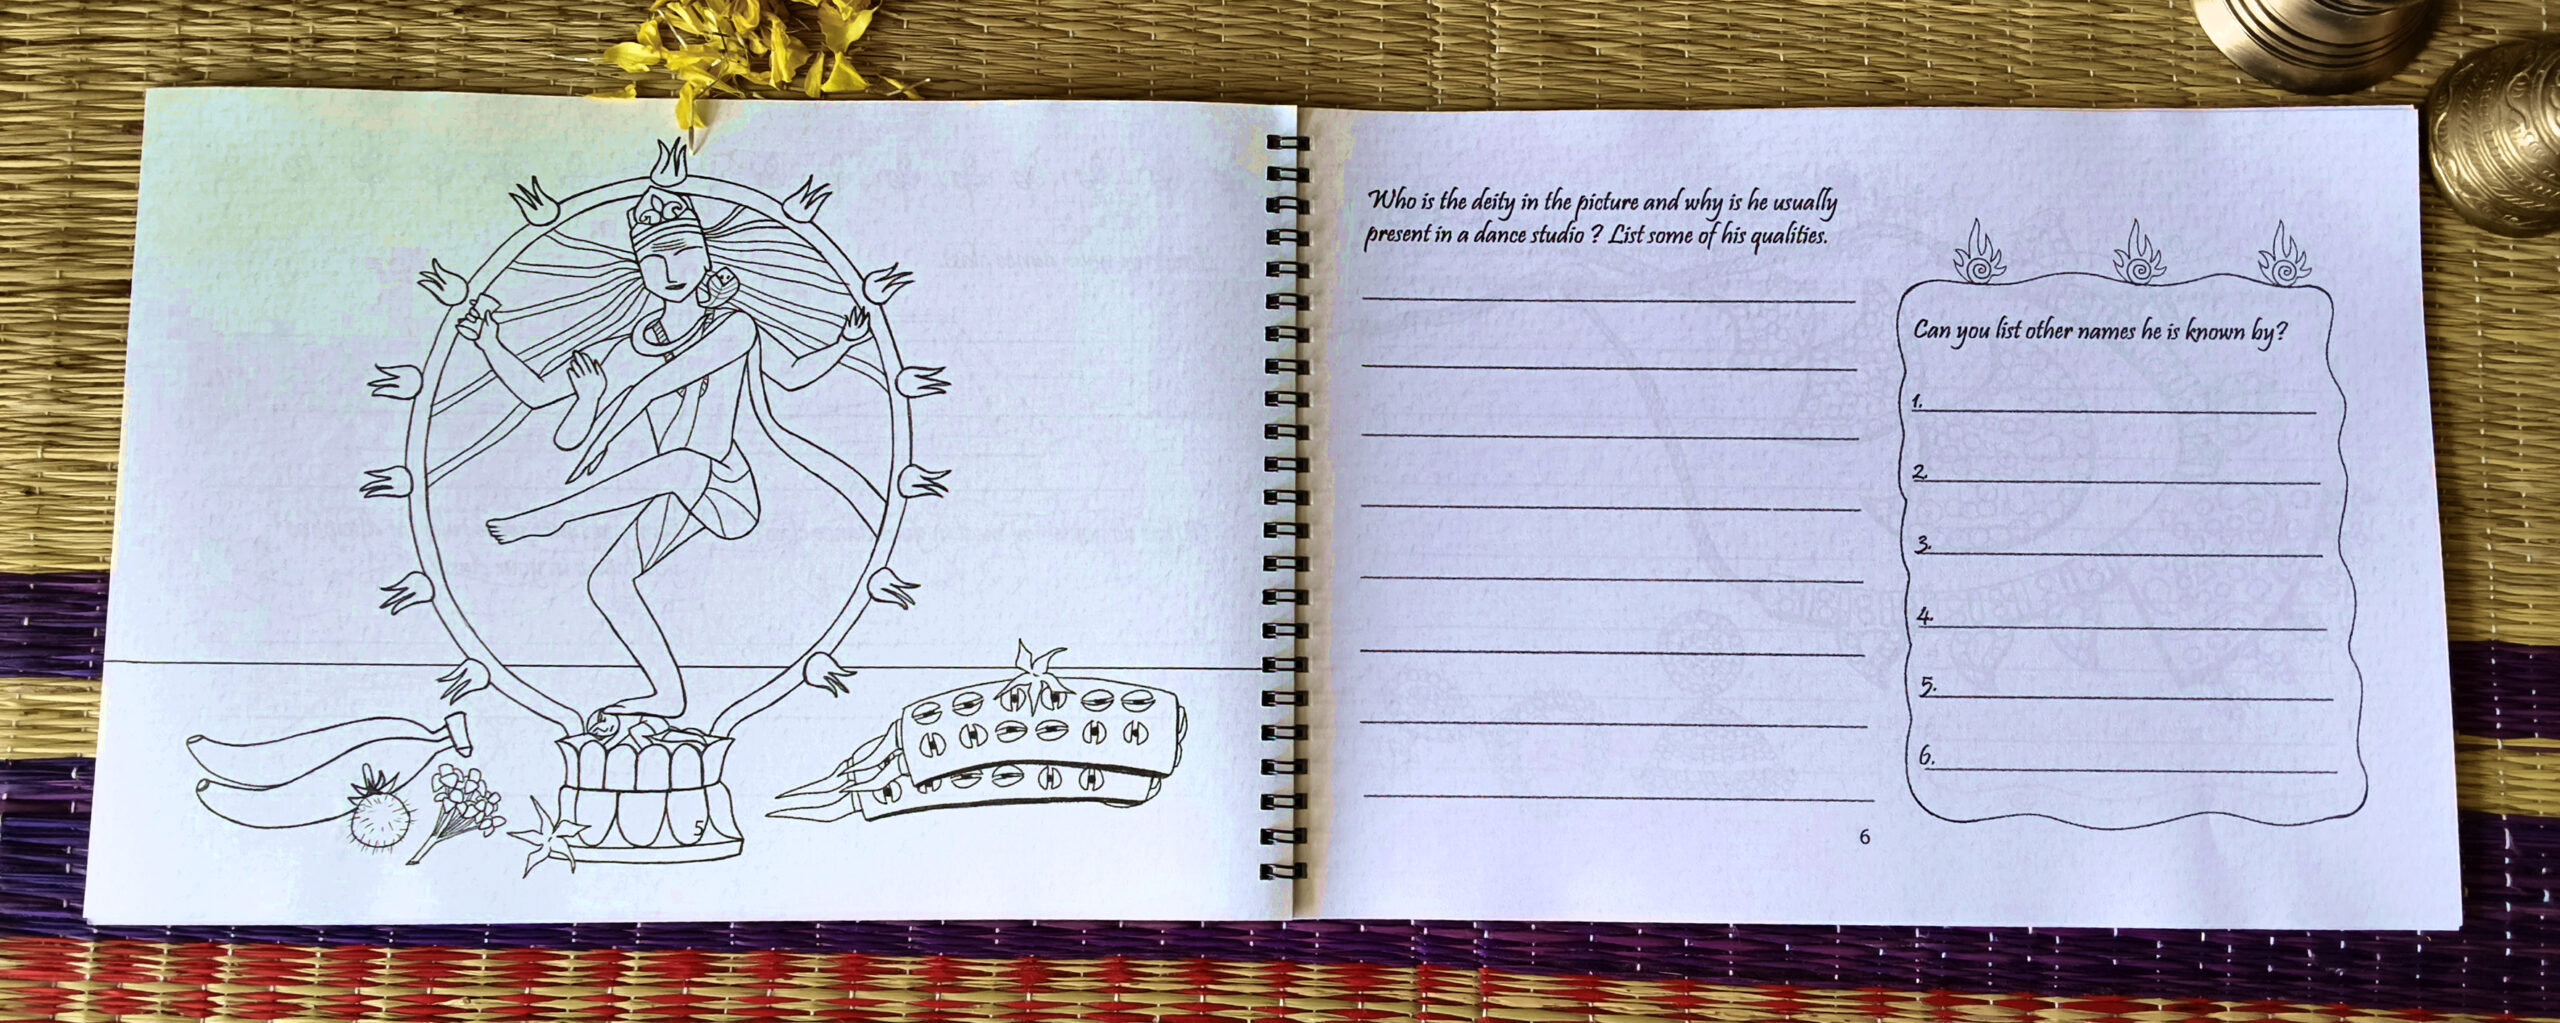 5
Who is the deity in the picture and why is he usually
present in a dance studio ? List some of his qualities.
Can you list other names he is known by?
1.
2.
3.
4.
5.
6.
6